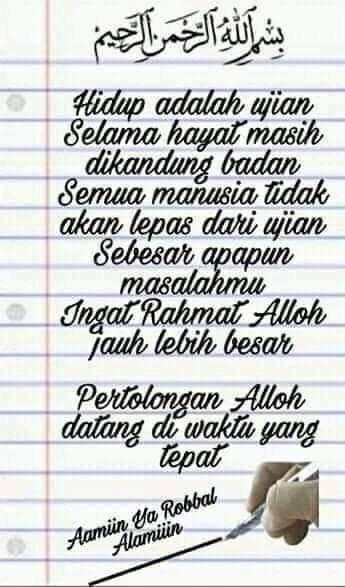 بسم الله الرحمن الرحيم
Hidup adalah ujian
Selama hayat masih
dikandung badan
Semua manusia tidak
akan lepas dari ujian
Sebesar apapun
masalahmu
Ingat Rahmat Alloh
jauh lebih besar
Pertolongan Alloh
datang di waktu yang
tepat
Aamiin Ya Robbal
Alamiiin